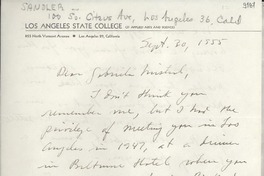 SANDLER
100 So. Citrus Ave, Los Angeles 36, Calif
LOS ANGELES STATE COLLEGE OF APPLIED ARTS AND SCIENCES
855 North Vermont Avenue • Los Angeles 29, California
Sept. 20, 1955
Dear Gabriela Mistral,
I don't think you
remember me, but I had the
privilege of meeting you in Los
Angeles in 1947, at a dinner
in Biltmore Hotel when you